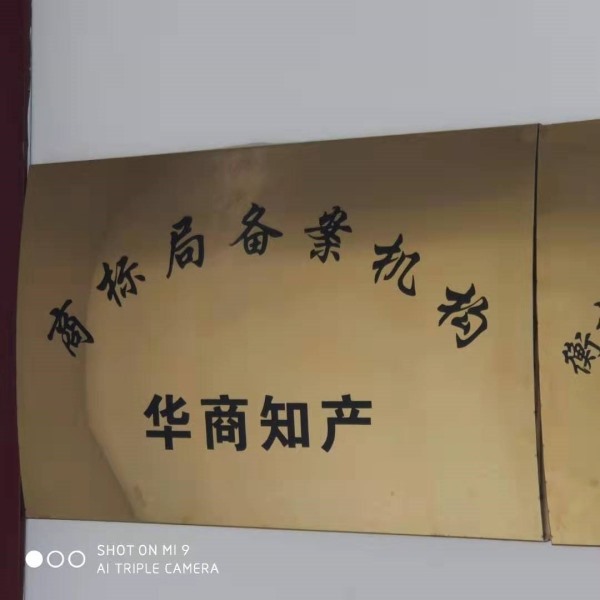 商标局备案机构
华商知产
衡
SHOT ON MI 9
AI TRIPLE CAMERA